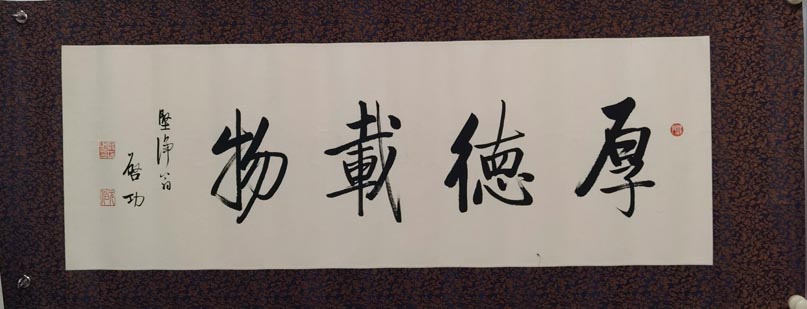 厚德載物
堅淨翁
啓功